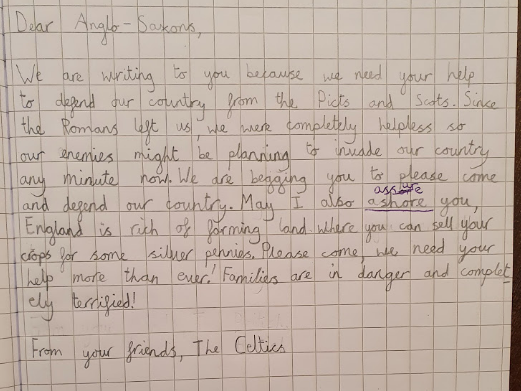 Dear Anglo-Saxons,
We are writing to you because we need your help
to defend our country from the Picts and Scots. Since
the Romans left us, we were completely helpless so
our enemies might be planning to invade our country
any minute now. We are begging you to please come
assore
and defend our country. May I also ashore you,
England is rich of farming land where you can sell your
crops for some silver pennies. Please come, we need your
help more than ever! Families are in danger and complet
ely terrified!
From your friends, The Celtics